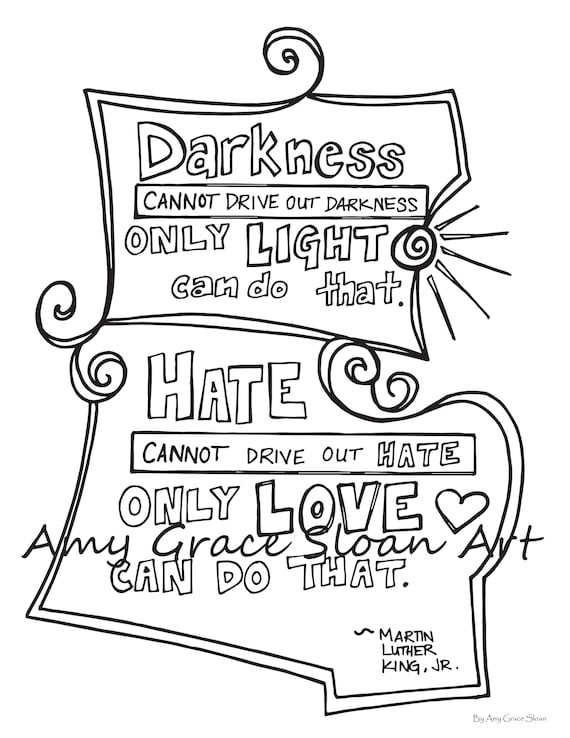 Darkness
CANNOT DRIVE OUT DARKNESS
ONLY LIGHT
can do that.
HATE
CANNOT DRIVE OUT HATE
ONLY LOVE
Amy Grace Sloan Art
CAN DO THAT.
~ MARTIN
LUTHER
KING, JR.
By Amy Grace Sloan